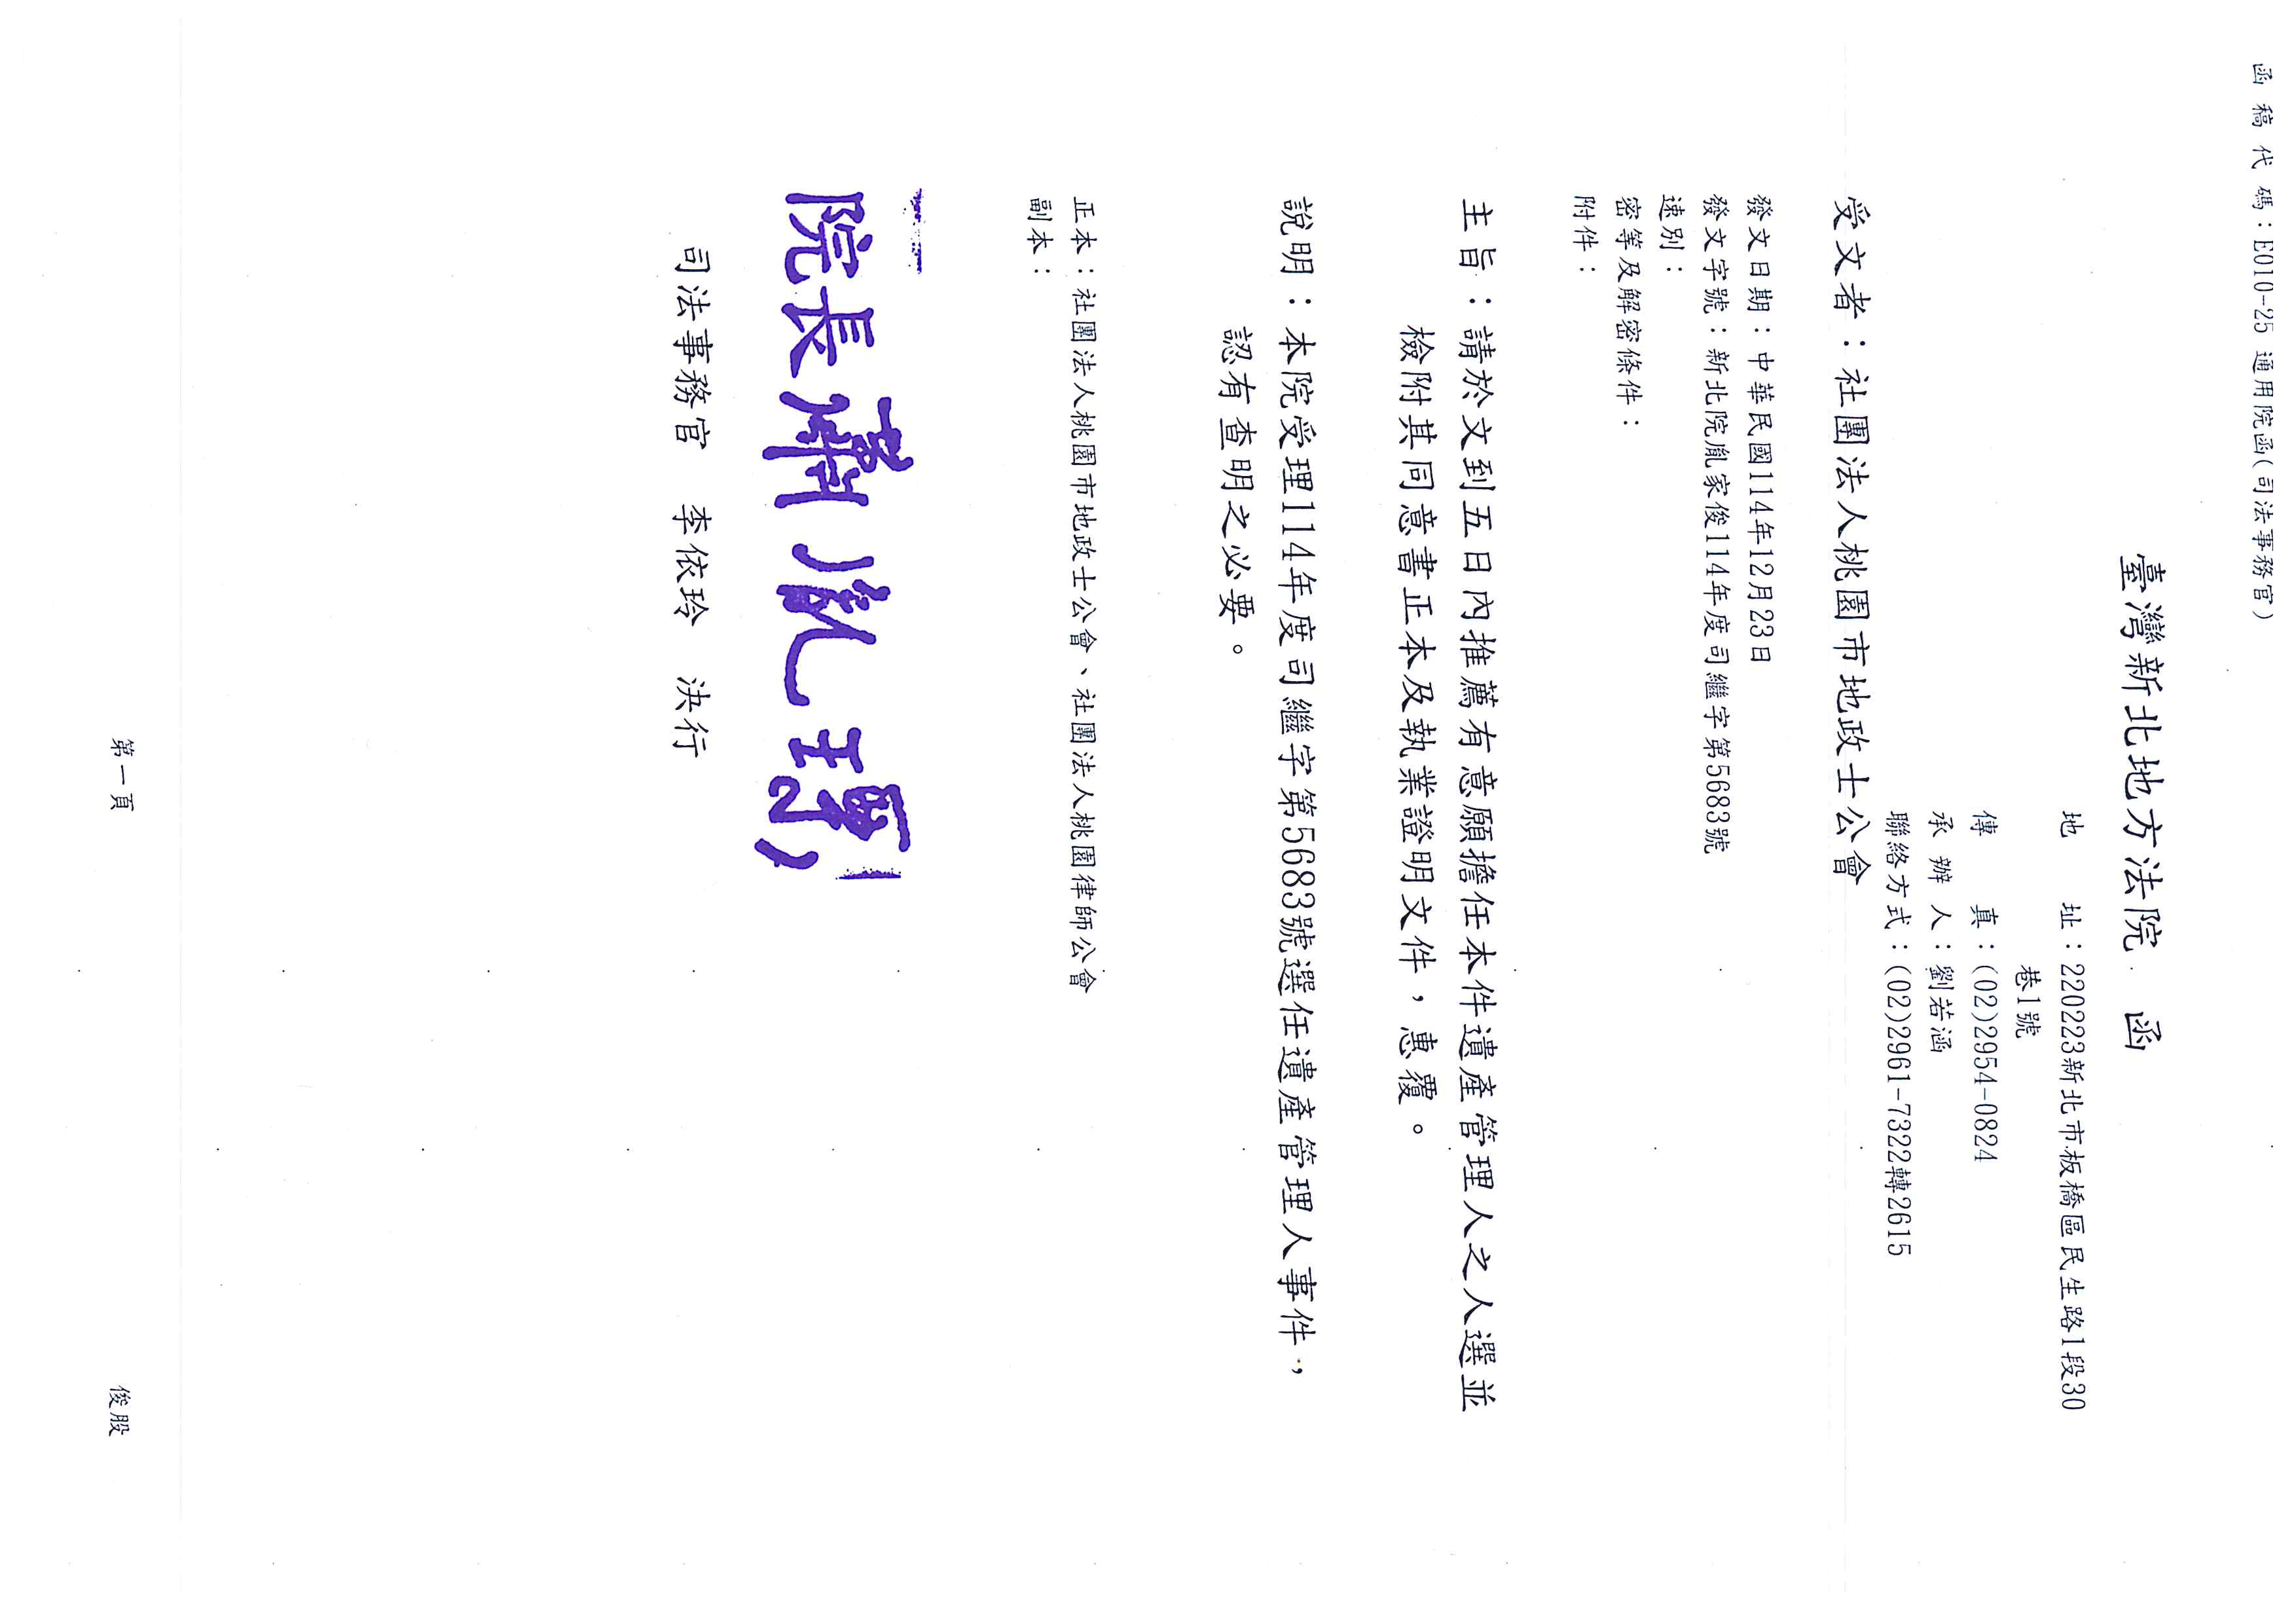 函稿代碼：E010-25 通用院函(司法事務官)
臺灣新北地方法院　函
地　　址：220223新北市板橋區民生路1段30
巷1號
傳　　真：(02)2954-0824
承 辦 人：劉若涵
聯絡方式：(02)2961-7322轉2615
受文者：社團法人桃園市地政士公會
發文日期：中華民國114年12月23日
發文字號：新北院胤家俊114年度司繼字第5683號
速別：
密等及解密條件：
附件：
主旨：請於文到五日內推薦有意願擔任本件遺產管理人之人選並
檢附其同意書正本及執業證明文件，惠覆。
說明：本院受理114年度司繼字第5683號選任遺產管理人事件，
認有查明之必要。
正本：社團法人桃園市地政士公會、社團法人桃園律師公會
副本：
院長蕭胤瑮
司法事務官　李依玲　決行
第一頁
俊股